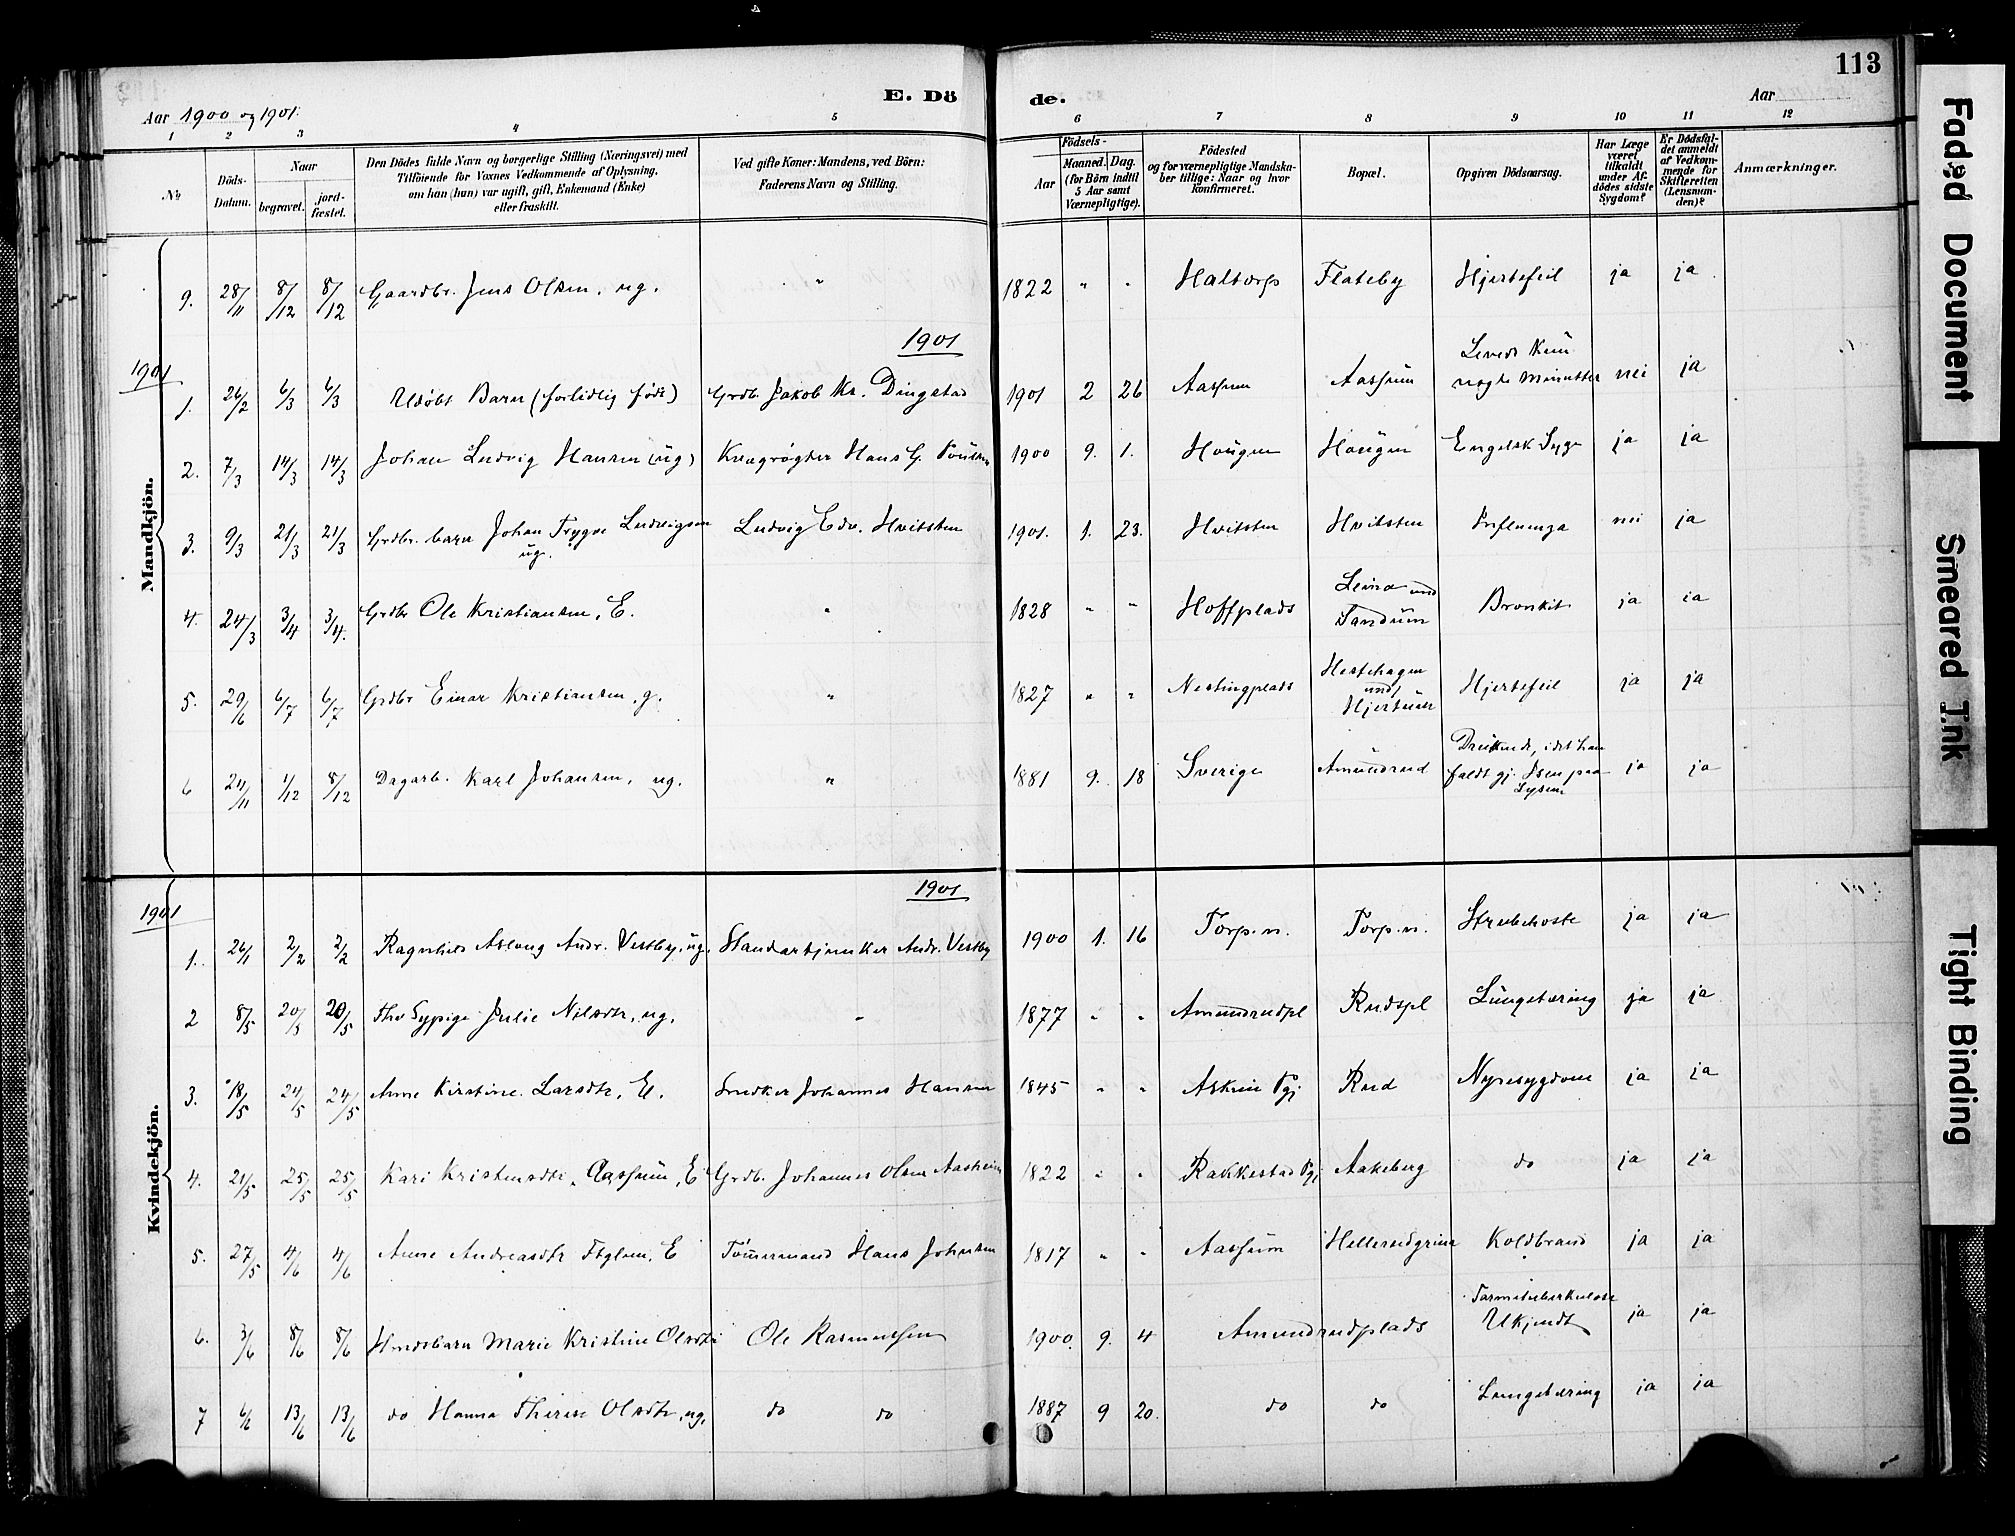 113
E. Dö de.
Aar 1900 og 1901. Aar
1 2 3 4 5 6 7 8 9 10 11 12
No
Döds-Datum.
Naar
begravet.
jord-fæstet.
Den Dödes fulde Navn og borgerlige Stilling (Næringsvei) med
Tilföiende for Voxnes Vedkommende af Oplysning,
om han (hun) var ugift, gift, Enkemand (Enke)
eller fraskilt.
Ved gifte Koner: Mandens, ved Börn:
Faderens Navn og Stilling.
Födsels-
Aar
Maaned. Dag.
(for Börn indtil
5 Aar samt
Værnepligtige).
Födested
og for værnepligtige Mandska-
ber tillige: Naar og hvor
konfirmeret.
Bopæl.
Opgiven Dödsaarsag.
Har Læge
været
tilkaldt
under Af-
dödes sidste
Sygdom?
Er Dödsfal-
det anmeldt
af Vedkom-
mende for
Skifteretten
(Lensman-
den)?
Anmærkninger.
Mandkjön.
9. 28/11 8/12 8/12 Gaardbr. Jens Olsen, ug. " 1822 " " Haltorp Flateby Hjertefeil ja ja
1901
1901
1. 26/2 6/3 6/3 Udøbt Barn (fortidlig født) Grdb. Jakob Kr. Dingstad 1901 2 26 Aassum Aassum Levede kun
nogle Minutter nei ja
2. 7/3 14/3 14/3 Johan Ludvig Hansen (ug) Kvægrøgter Hans G. 1900 9. 1. Hougen Hougen Engelsk Syge ja ja
3. 9/3 21/3 21/3 Grdbr. barn Johan Trygve Ludvigsen
ug. Ludvig Edv. Hvitsten 1901. 1. 23. Hvitsten Hvitsten Influenza nei ja
4. 24/3 3/4 3/4. Grdbr Ole Kristiansen, E. " 1828 " " Hoffplads und
Sandum Bronkit ja ja
5. 29/6 6/7 6/7 Grdbr Einar Kristiansen, g. " 1827 " " Nestingplads Hestehagen
und. Hjertefeil ja ja
6 24/11 1/12 8/12 Dagarb. Karl Johansen, ug. " 1881 9. 18 Sverige Amundrud Druknede, idet han
faldt gj. Isen paa
Lysern ja ja
Kvindekjön.
1901
1901
1. 26/1 2/2 2/2 Ragnhild Aslaug Andr. Vestby, ug. Standartjunker Andr. Vestby 1900 1. 16 Torp. n. Torp. n. Strubehoste ja ja
2 8/5 20/5 20/5 Julie Nilsdtr, ug. " 1877 " " Amundrudpl Rudspl Lungetæring ja ja
3. 18/5 24/5 24/5 Anne Kirstine Larsdtr, E. Snedker Johannes Hansen 1845 " " Askim Pgj Rud Nyresygdom ja ja
4. 21/5 25/5 25/5 Kari Kristensdtr Aassum, E Grdb. Johannes Olsen Aasheim 1822 " " Rakkestad Pgj Aakeberg do ja ja
5. 27/5 4/6 4/6 Anne Andreasdtr E Tömmermand Hans Johnsen 1817 " " Aassum Koldbrand ja ja
6. 3/6 8/6 8/6 Hmdsbarn Marie Kristine Olsdtr Ole Rasmussen 1900. 9. 4 Amundrudplads Tarmtuberkulose
Ukjendt ja ja
7 6/6 13/6 13/6 do Hanna Therese Olsdtr, ug. do do 1887 9 20. do do Lungetæring ja ja
Faded Document
Smeared Ink
Tight Binding